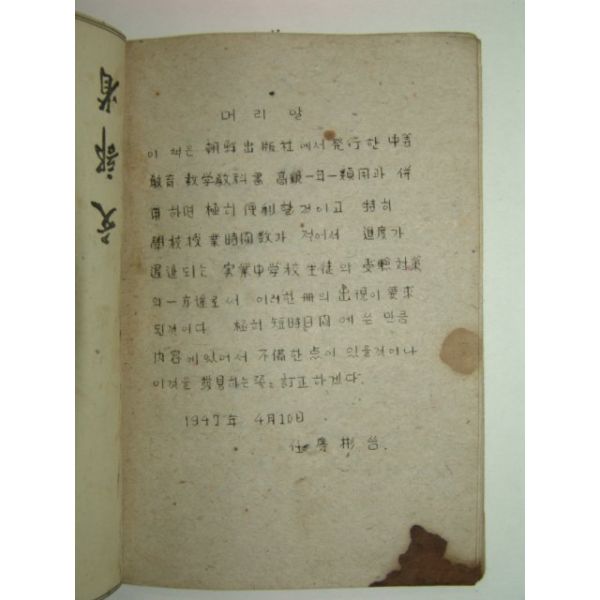 머리말
이 책은 朝鮮出版社에서 発行한 中等
敎育 数学敎科書 高級一年 類用과 併
用하면 極히 便利할 것이고 特히
學校授業時間数가 적어서 進度가
遅進되는 実業中学校生徒의 受驗対策
의 一方途로써 이러한 冊의 出現이 要求
된것이다 極히 短時日間에 쓴 만큼
内容에있어서 不備한点이 있을것이나
이것을 発見하는쪽쪽 訂正하겠다.
1947年 4月10日
任 彬